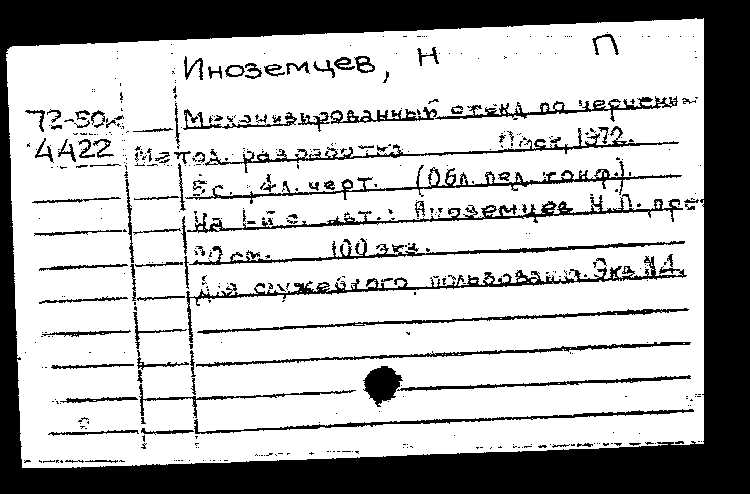 Иноземцев, Н П
72-50к Механизированный стенд по черчени
4422 Метод. разработка 1972.
8 с., 4 л. черт. (Обл. пед. конф.).
На 1-й с. авт.: Иноземцев Н.П.,
20 см. 100 экз.
Для служебного пользования. Экз. №4.